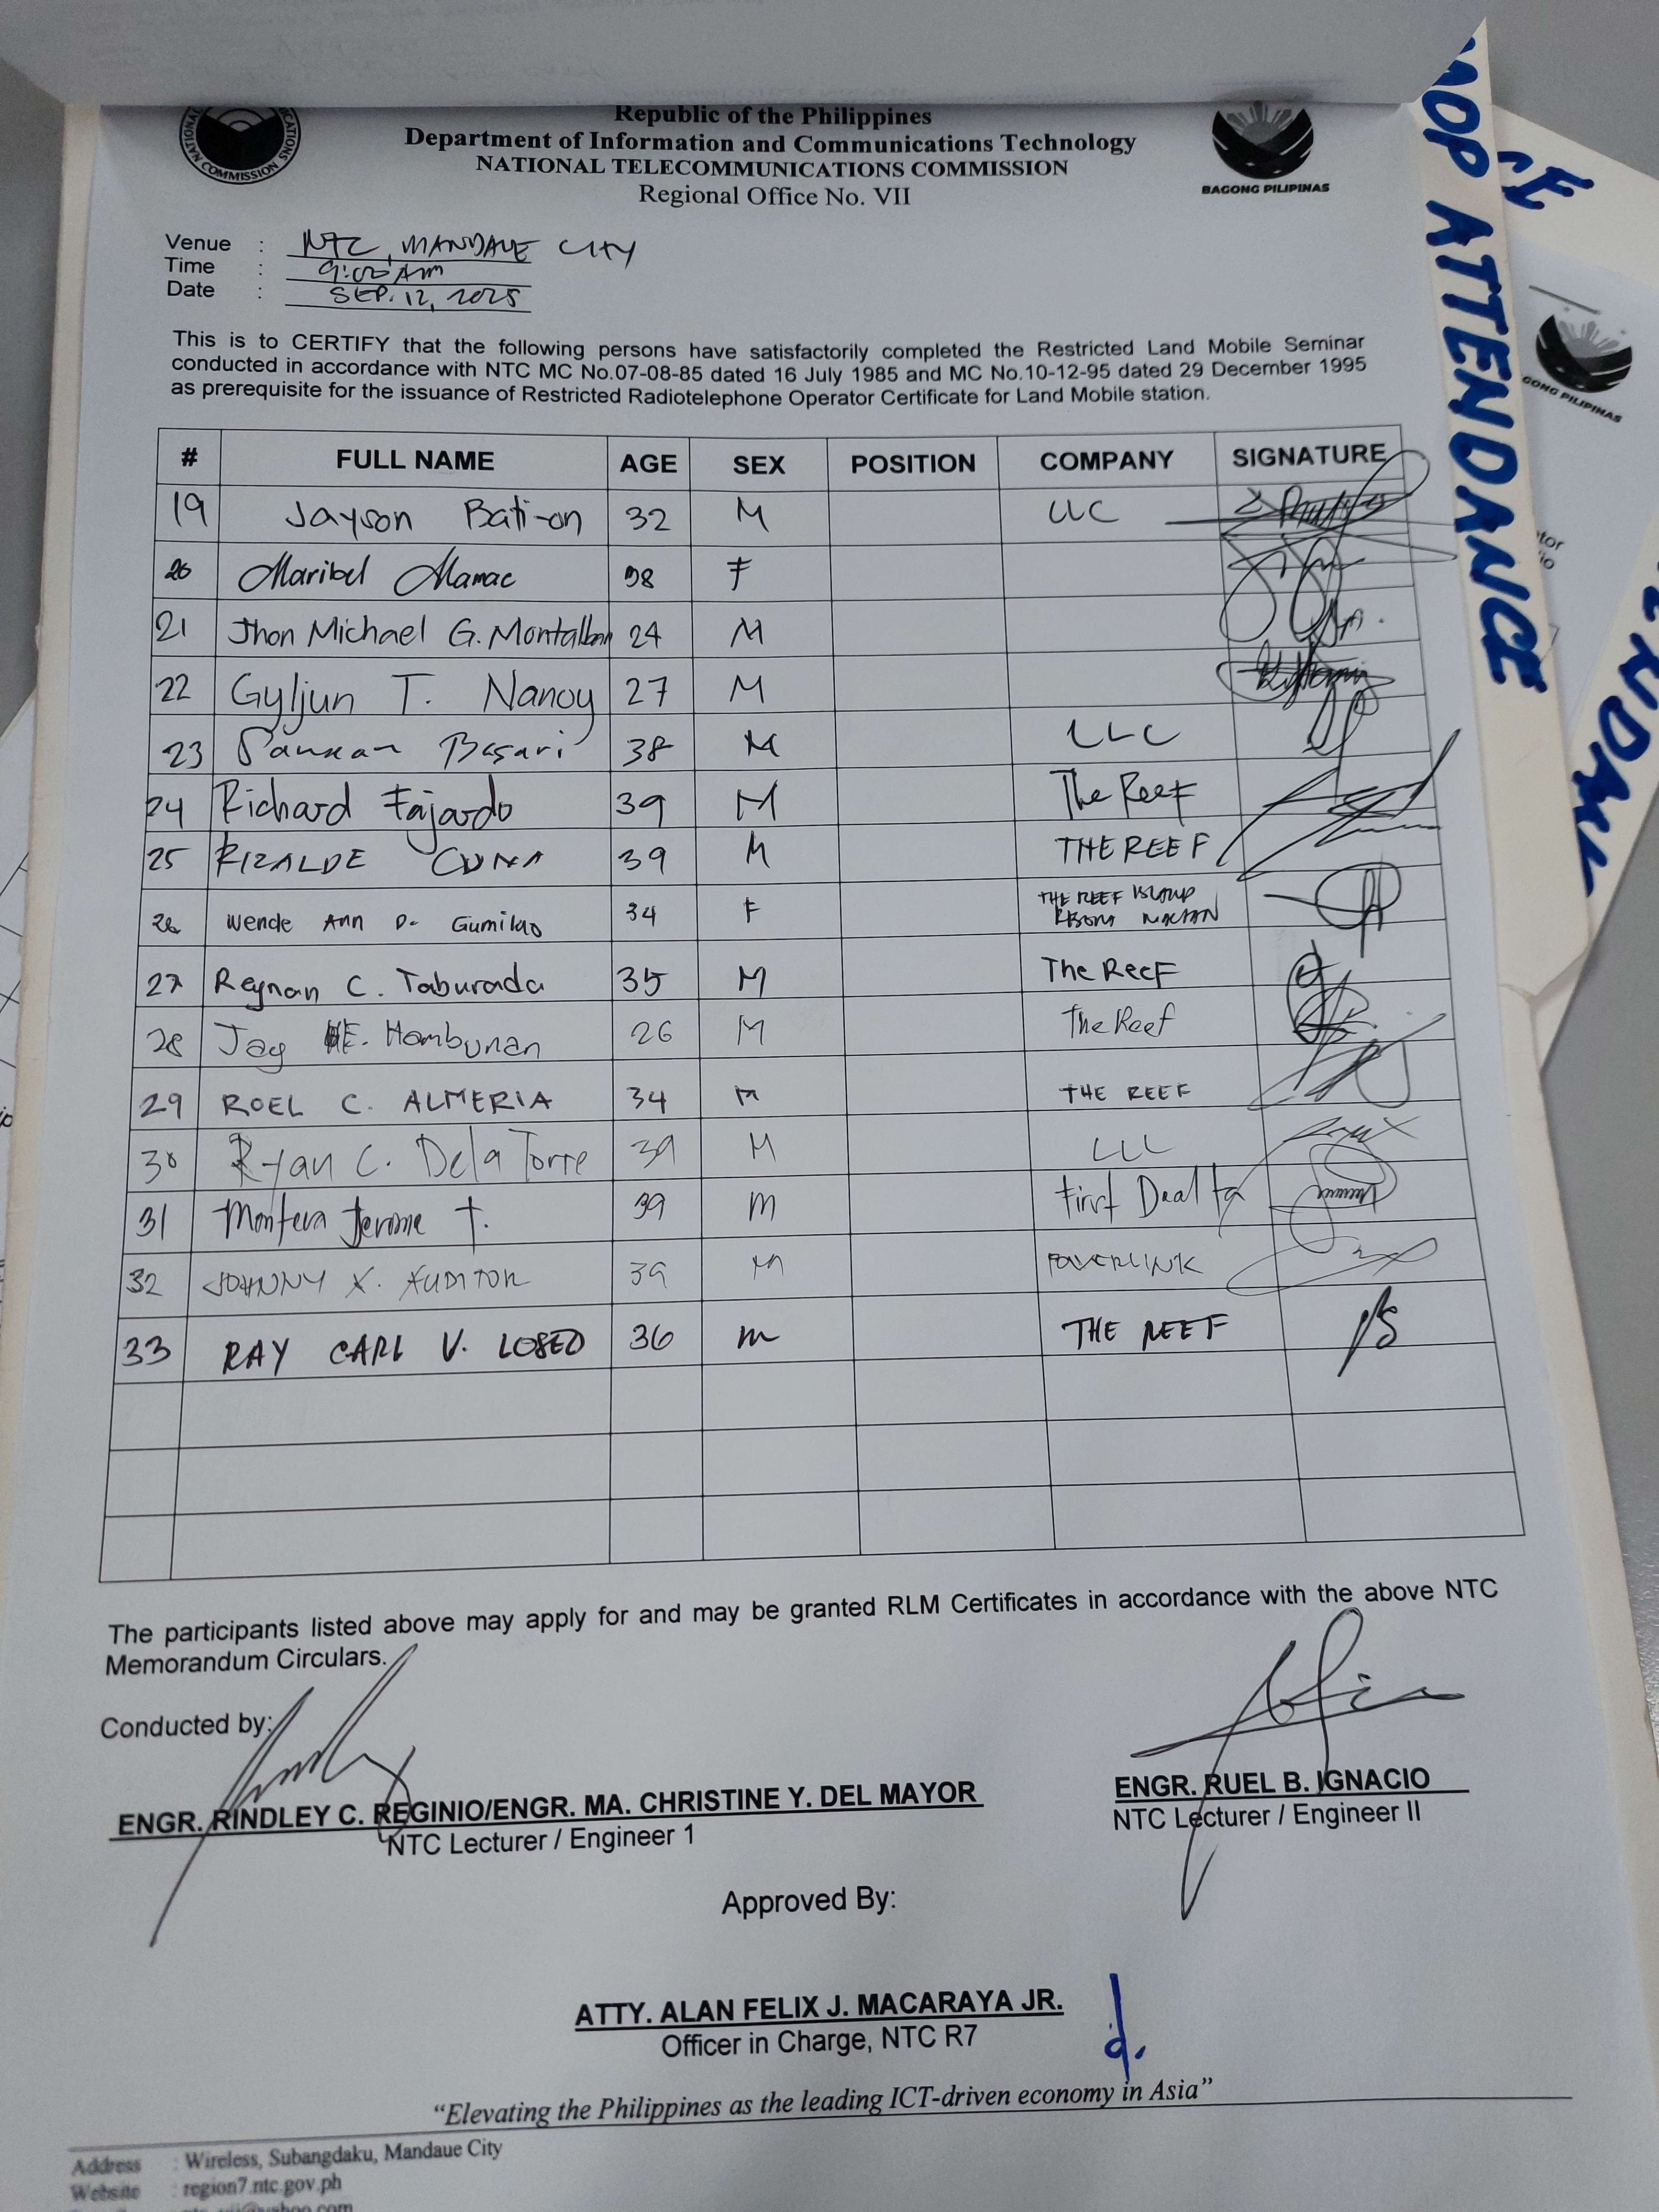 Republic of the Philippines
Department of Information and Communications Technology
NATIONAL TELECOMMUNICATIONS COMMISSION
Regional Office No. VII
BAGONG PILIPINAS
Venue : NTC, MANDAUE CITY
Time : 9:00 AM
Date : SEP. 12, 2025
This is to CERTIFY that the following persons have satisfactorily completed the Restricted Land Mobile Seminar
conducted in accordance with NTC MC No.07-08-85 dated 16 July 1985 and MC No.10-12-95 dated 29 December 1995
as prerequisite for the issuance of Restricted Radiotelephone Operator Certificate for Land Mobile station.
# FULL NAME AGE SEX POSITION COMPANY SIGNATURE
19 Jayson Bati-on 32 M LLC
20 Maribel Mamac F
21 Jhon Michael G. Montalban 24 M
22 Gyljun T. Nanoy 27 M
23 Basari 38 M LLC
24 Richard Fajardo 39 M The Reef
25 RIZALDE CUNA 39 M THE REEF
26 Wende Ann D. Gumilao 34 F THE REEF ISLAND
27 Reynan C. Taburada 35 M The Reef
28 Jay E. Hambunan 26 M The Reef
29 ROEL C. ALMERIA 34 M THE REEF
30 Ryan C. Dela Torre 39 M LLC
31 Jerome T. 39 m First
32 JOHNNY X. AUDITOR 39 M POWERLINK
33 RAY CARL V. LOSED 36 m THE REEF
The participants listed above may apply for and may be granted RLM Certificates in accordance with the above NTC
Memorandum Circulars.
Conducted by:
ENGR. RINDLEY C. REGINIO/ENGR. MA. CHRISTINE Y. DEL MAYOR
NTC Lecturer / Engineer 1
ENGR. RUEL B. IGNACIO
NTC Lecturer / Engineer II
Approved By:
ATTY. ALAN FELIX J. MACARAYA JR.
Officer in Charge, NTC R7
“Elevating the Philippines as the leading ICT-driven economy in Asia”
Address : Wireless, Subangdaku, Mandaue City
Website : region7.ntc.gov.ph
ATTENDANCE